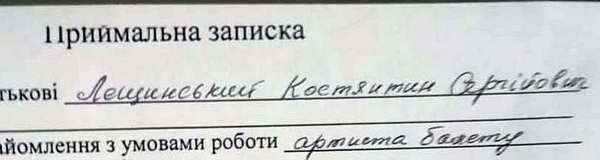 Приймальна записка
тькові Лещинський Костянтин Сергійович
айомлення з умовами роботи артиста балету